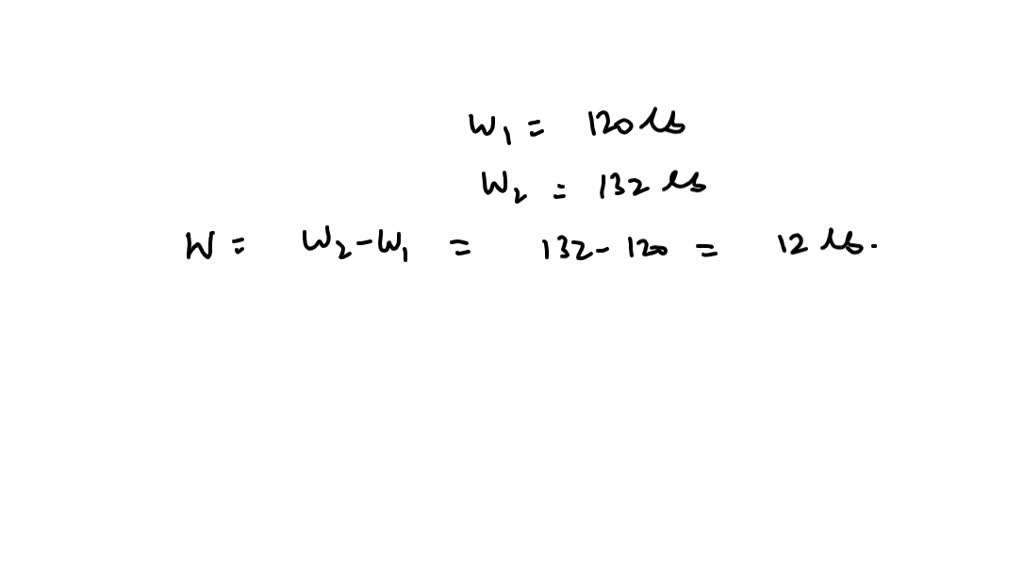 W₁ = 120 lb
W₂ = 132 lb
W = W₂-W₁ = 132-120 = 12 lb.